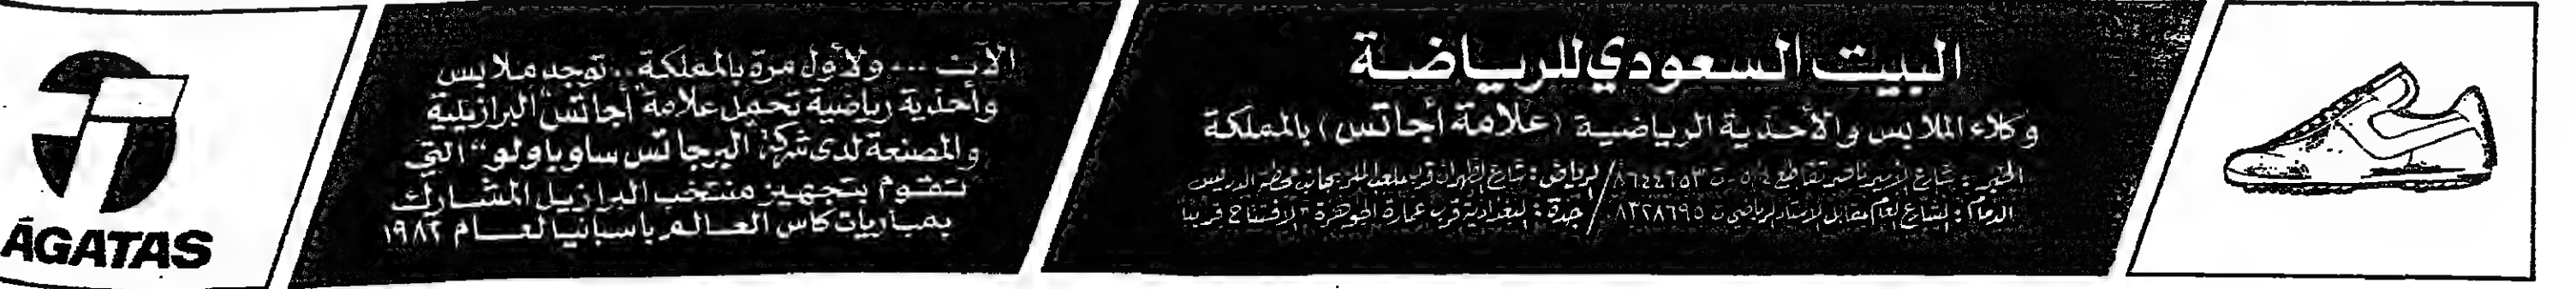 البيت السعودي للرياضة
وكلاء الملابس والأحذية الرياضية (علامة أجاتس) بالمملكة
الخبر: شارع الأمير ناصر تقاطع ٥/٤ - ت ٨٦٤٤٦٥٣ / الرياض: شارع الظهران قرب ملعب الملز بجانب محطة الدريس
الدمام: الشارع العام مقابل الاستاد الرياضي ت ٨٣٢٨٦٩٥ / جدة: البغدادية قرب عمارة الجوهرة "الافتتاح قريباً"
الآن ... ولأول مرة بالمملكة .. توجد ملابس
وأحذية رياضية تحمل علامة "أجاتس" البرازيلية
والمصنعة لدى شركة "البرجاتس ساوباولو" التي
تقوم بتجهيز منتخب البرازيل المشارك
بمباريات كاس العالم باسبانيا لعام ١٩٨٢
ĀGATAS